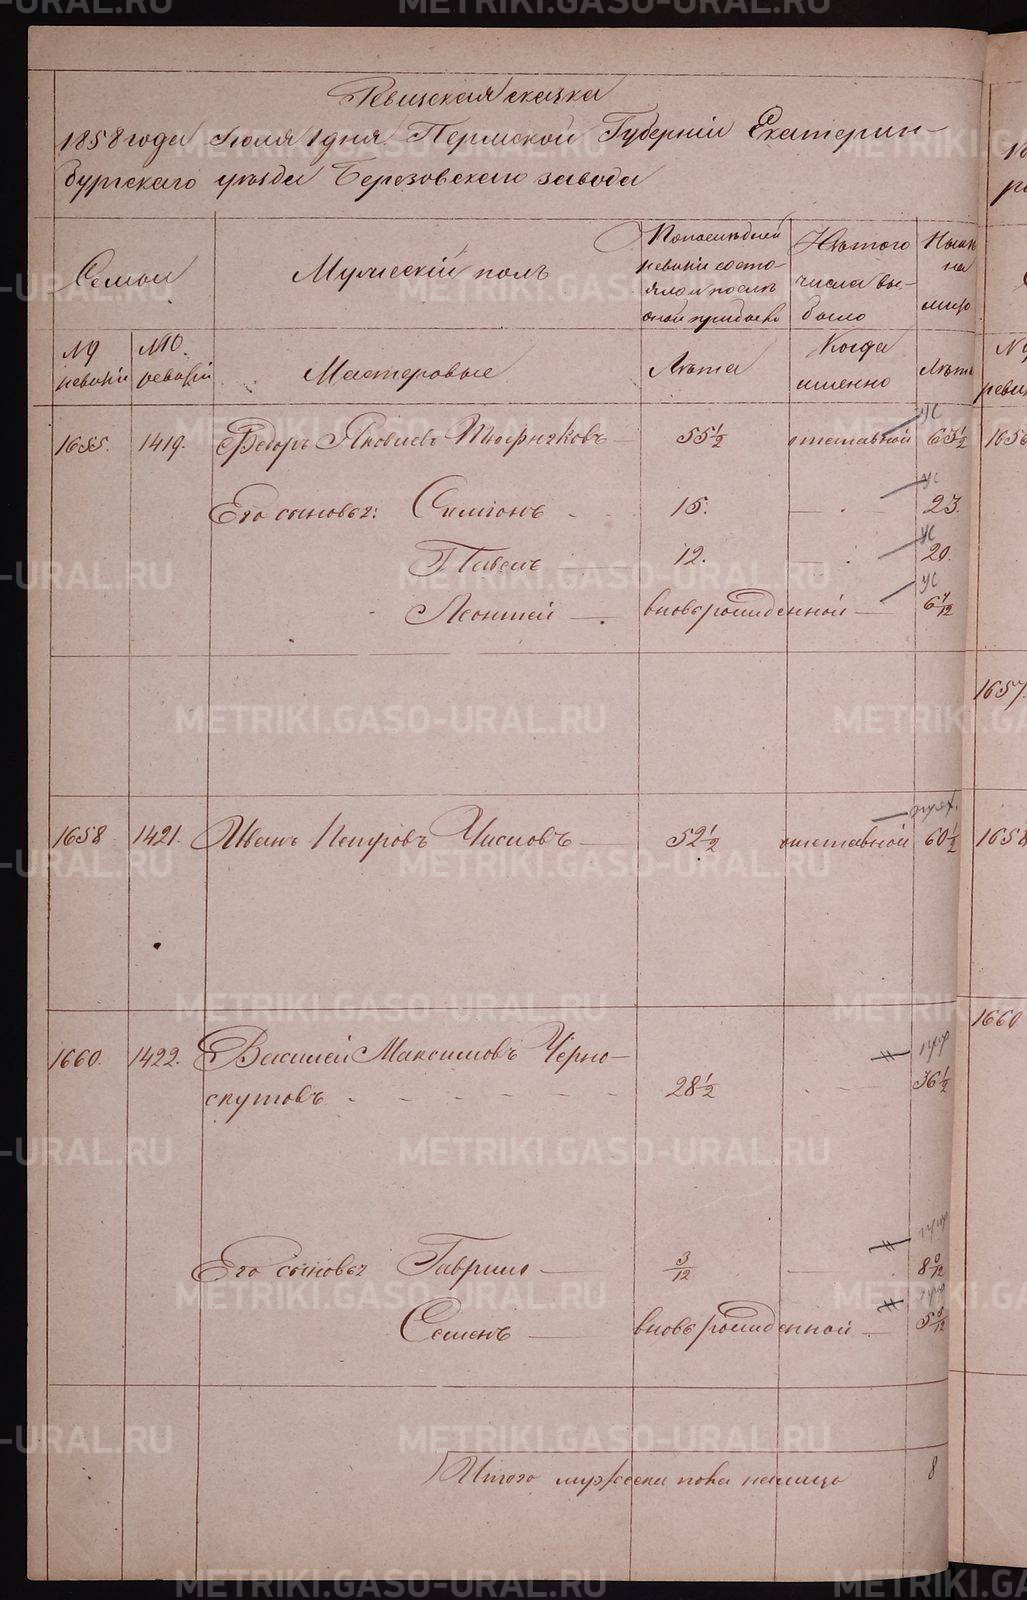 Ревизская сказка
1858 года Июля 1 дня. Пермской Губерніи Екатерин-
бургскаго уѣзда Березовскаго завода
Семьи
Мужескій полъ
По последней
ревизіи состо-
яло и послѣ
оной прибыло
Изъ того
числа вы-
было
Ныне
на
лицо
№9
ревизіи
№10.
ревизіи
Мастеровые
Лѣта
Когда
именно
Лѣта
1655. 1419. Федоръ Яковлевъ 55 1/2 отставной 63 1/2
Его сыновья: Симіонъ 15. 23.
Павелъ 12. 20.
Леонтей вновьрожденной 6 7/12
1658 1421. Иванъ Петровъ Числовъ 52 1/2 отставной 60 1/2
1660. 1422. Василей Максимовъ Черно-
скутовъ 28 1/2 36 1/2
Его сыновья Гаврило 3/12 8 9/12
Семенъ вновь рожденной 5 5/12
Итого мужеска пола налицо 8
1656
1657.
1658
1660
METRIKI.GASO-URAL.RU